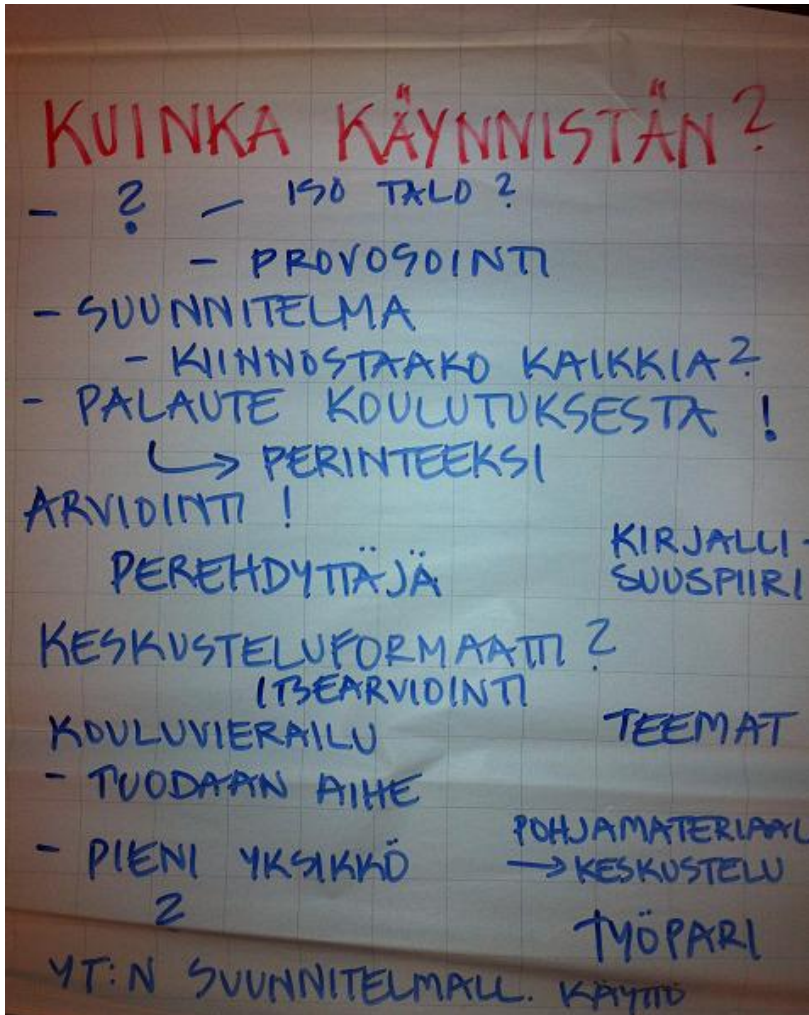 KUINKA KÄYNNISTÄN?
- ? - ISO TALO?
- PROVOSOINTI
- SUUNNITELMA
- KIINNOSTAAKO KAIKKIA?
- PALAUTE KOULUTUKSESTA!
↳ PERINTEEKSI
ARVIOINTI!
PEREHDYTTÄJÄ
KIRJALLI-
SUUSPIIRI
KESKUSTELUFORMAATTI?
ITSEARVIOINTI
KOULUVIERAILU
TEEMAT
- TUODAAN AIHE
- PIENI YKSIKKÖ
POHJAMATERIAAL
→ KESKUSTELU
2
TYÖPARI
YT:N SUUNNITELMALL. KÄYTTÖ